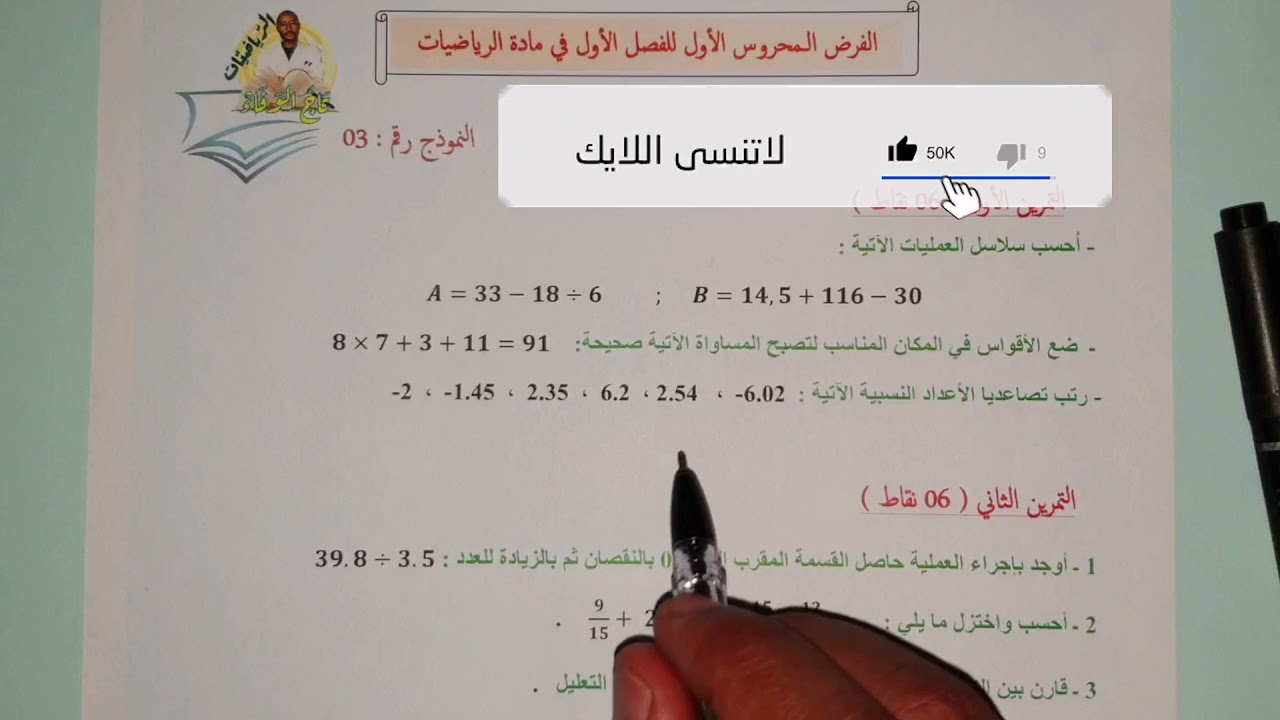 الرياضيات
تاج الوقار
الفرض المحروس الأول للفصل الأول في مادة الرياضيات
النموذج رقم : 03
لاتنسى اللايك 50K 9
06 نقاط )
- أحسب سلاسل العمليات الآتية :
A = 33 − 18 ÷ 6 ; B = 14,5 + 116 − 30
- ضع الأقواس في المكان المناسب لتصبح المساواة الآتية صحيحة: 8 × 7 + 3 + 11 = 91
- رتب تصاعديا الأعداد النسبية الآتية : -6.02 ، 2.54 ، 6.2 ، 2.35 ، -1.45 ، -2
التمرين الثاني ( 06 نقاط )
1 - أوجد بإجراء العملية حاصل القسمة المقرب 0 بالنقصان ثم بالزيادة للعدد : 39.8 ÷ 3.5
2 - أحسب واختزل ما يلي : 2 + 9/15 .
3 - قارن بين التعليل .